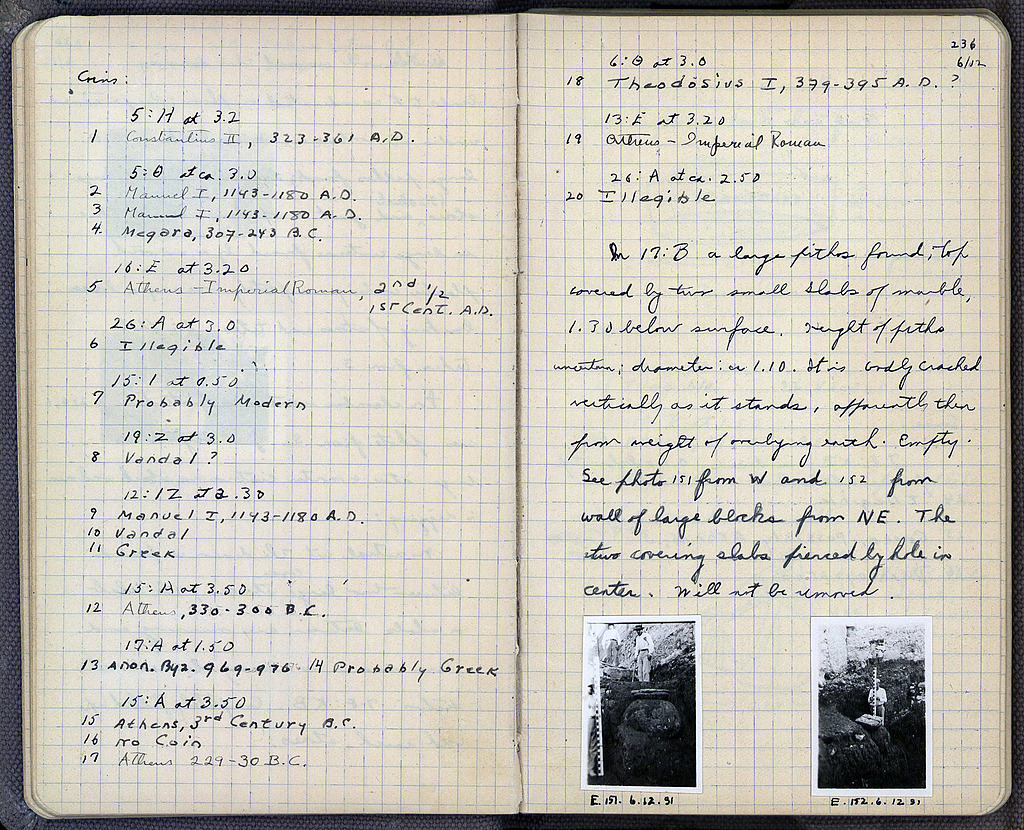 Coins:
5:H at 3.2
1 Constantius II, 323-361 A.D.
5:Θ at ca. 3.0
2 Manuel I, 1143-1180 A.D.
3 Manuel I, 1143-1180 A.D.
4. Megara, 307-243 B.C.
16:E at 3.20
5 Athens - Imperial Roman, 2nd 1/2
1st Cent. A.D.
26:A at 3.0
6 Illegible
15:I at 0.50
7 Probably Modern
19:Z at 3.0
8 Vandal?
12:IZ at 2.30
9 Manuel I, 1143-1180 A.D.
10 Vandal
11 Greek
15:A at 3.50
12 Athens, 330-300 B.C.
17:A at 1.50
13 Anon. Byz. 969-976. 14 Probably Greek
15:A at 3.50
15 Athens, 3rd Century B.C.
16 No Coin
17 Athens 229-30 B.C.
236
6/12
6:Θ at 3.0
18 Theodosius I, 379-395 A.D. ?
13:E at 3.20
19 Athens - Imperial Roman
26:A at ca. 2.50
20 Illegible
In 17:B a large pithos found, top
covered by two small slabs of marble,
1.30 below surface. Height of pithos
uncertain; diameter: ca 1.10. It is badly cracked
vertically as it stands, apparently then
from weight of overlying earth. Empty.
See photo 151 from W and 152 from
wall of large blocks from NE. The
two covering slabs pierced by hole in
center. Will not be removed.
E.151. 6.12.31
E.152.6.12 31